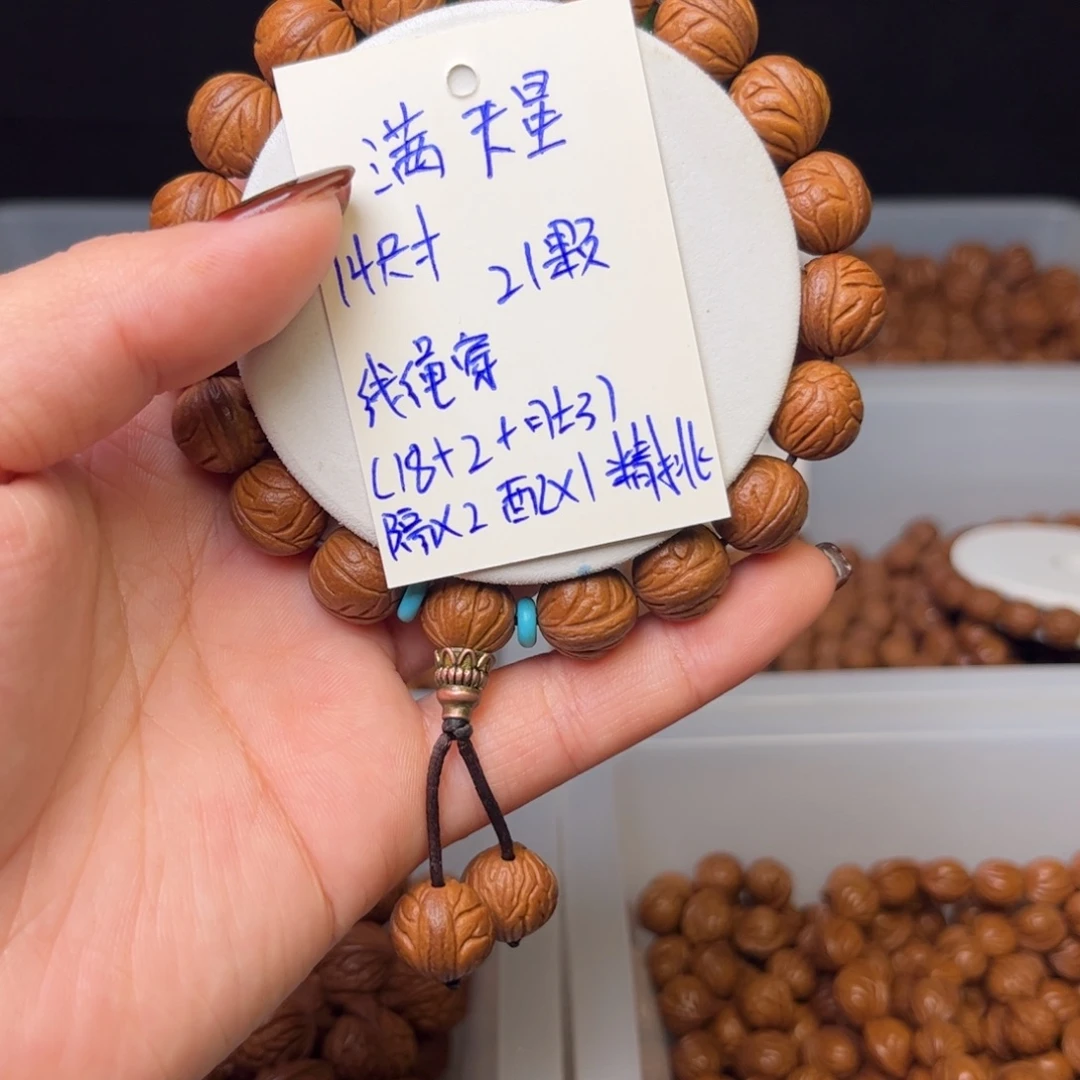 满天星
14尺寸 21颗
线绳穿
(18+2+1
隔x2 配x1 精挑